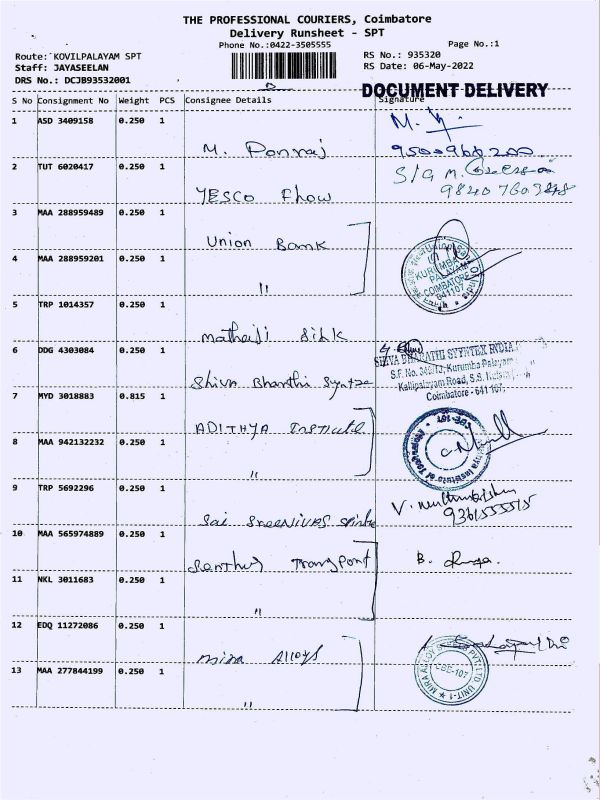 THE PROFESSIONAL COURIERS, Coimbatore
Delivery Runsheet - SPT
Phone No.:0422-3505555
Page No.:1
Route: KOVILPALAYAM SPT
RS No.: 935320
Staff: JAYASEELAN
RS Date: 06-May-2022
DRS No.: DCJB93532001
DOCUMENT DELIVERY
S No Consignment No Weight PCS Consignee Details Signature
1 ASD 3409158 0.250 1
M. Ponraj
2 TUT 6020417 0.250 1
YESCO Flow
S/G M.
3 MAA 288959489 0.250 1
Union Bank
4 MAA 288959201 0.250 1
"
KURUMBA
PALAYAM
COIMBATORE
641107
5 TRP 1014357 0.250 1
Mathaji Silk
6 DDG 4303084 0.250 1
Shiva Bharathi Syntex
SHIVA BHARATHI SYNTEX INDIA
S.F. No. 346/13, Kurumba Palayam
Kallipalayam Road, S.S.
Coimbatore - 641 107.
7 MYD 3018883 0.815 1
ADITHYA Institute
8 MAA 942132232 0.250 1
"
Institute of Technology
9 TRP 5692296 0.250 1
Sai Sreenivas
9361555515
10 MAA 565974889 0.250 1
Transport
B.
11 NKL 3011683 0.250 1
"
12 EDQ 11272086 0.250 1
Mira Alloys
13 MAA 277844199 0.250 1
"
MIRA ALLOY
PVT LTD UNIT-1
CBE-107